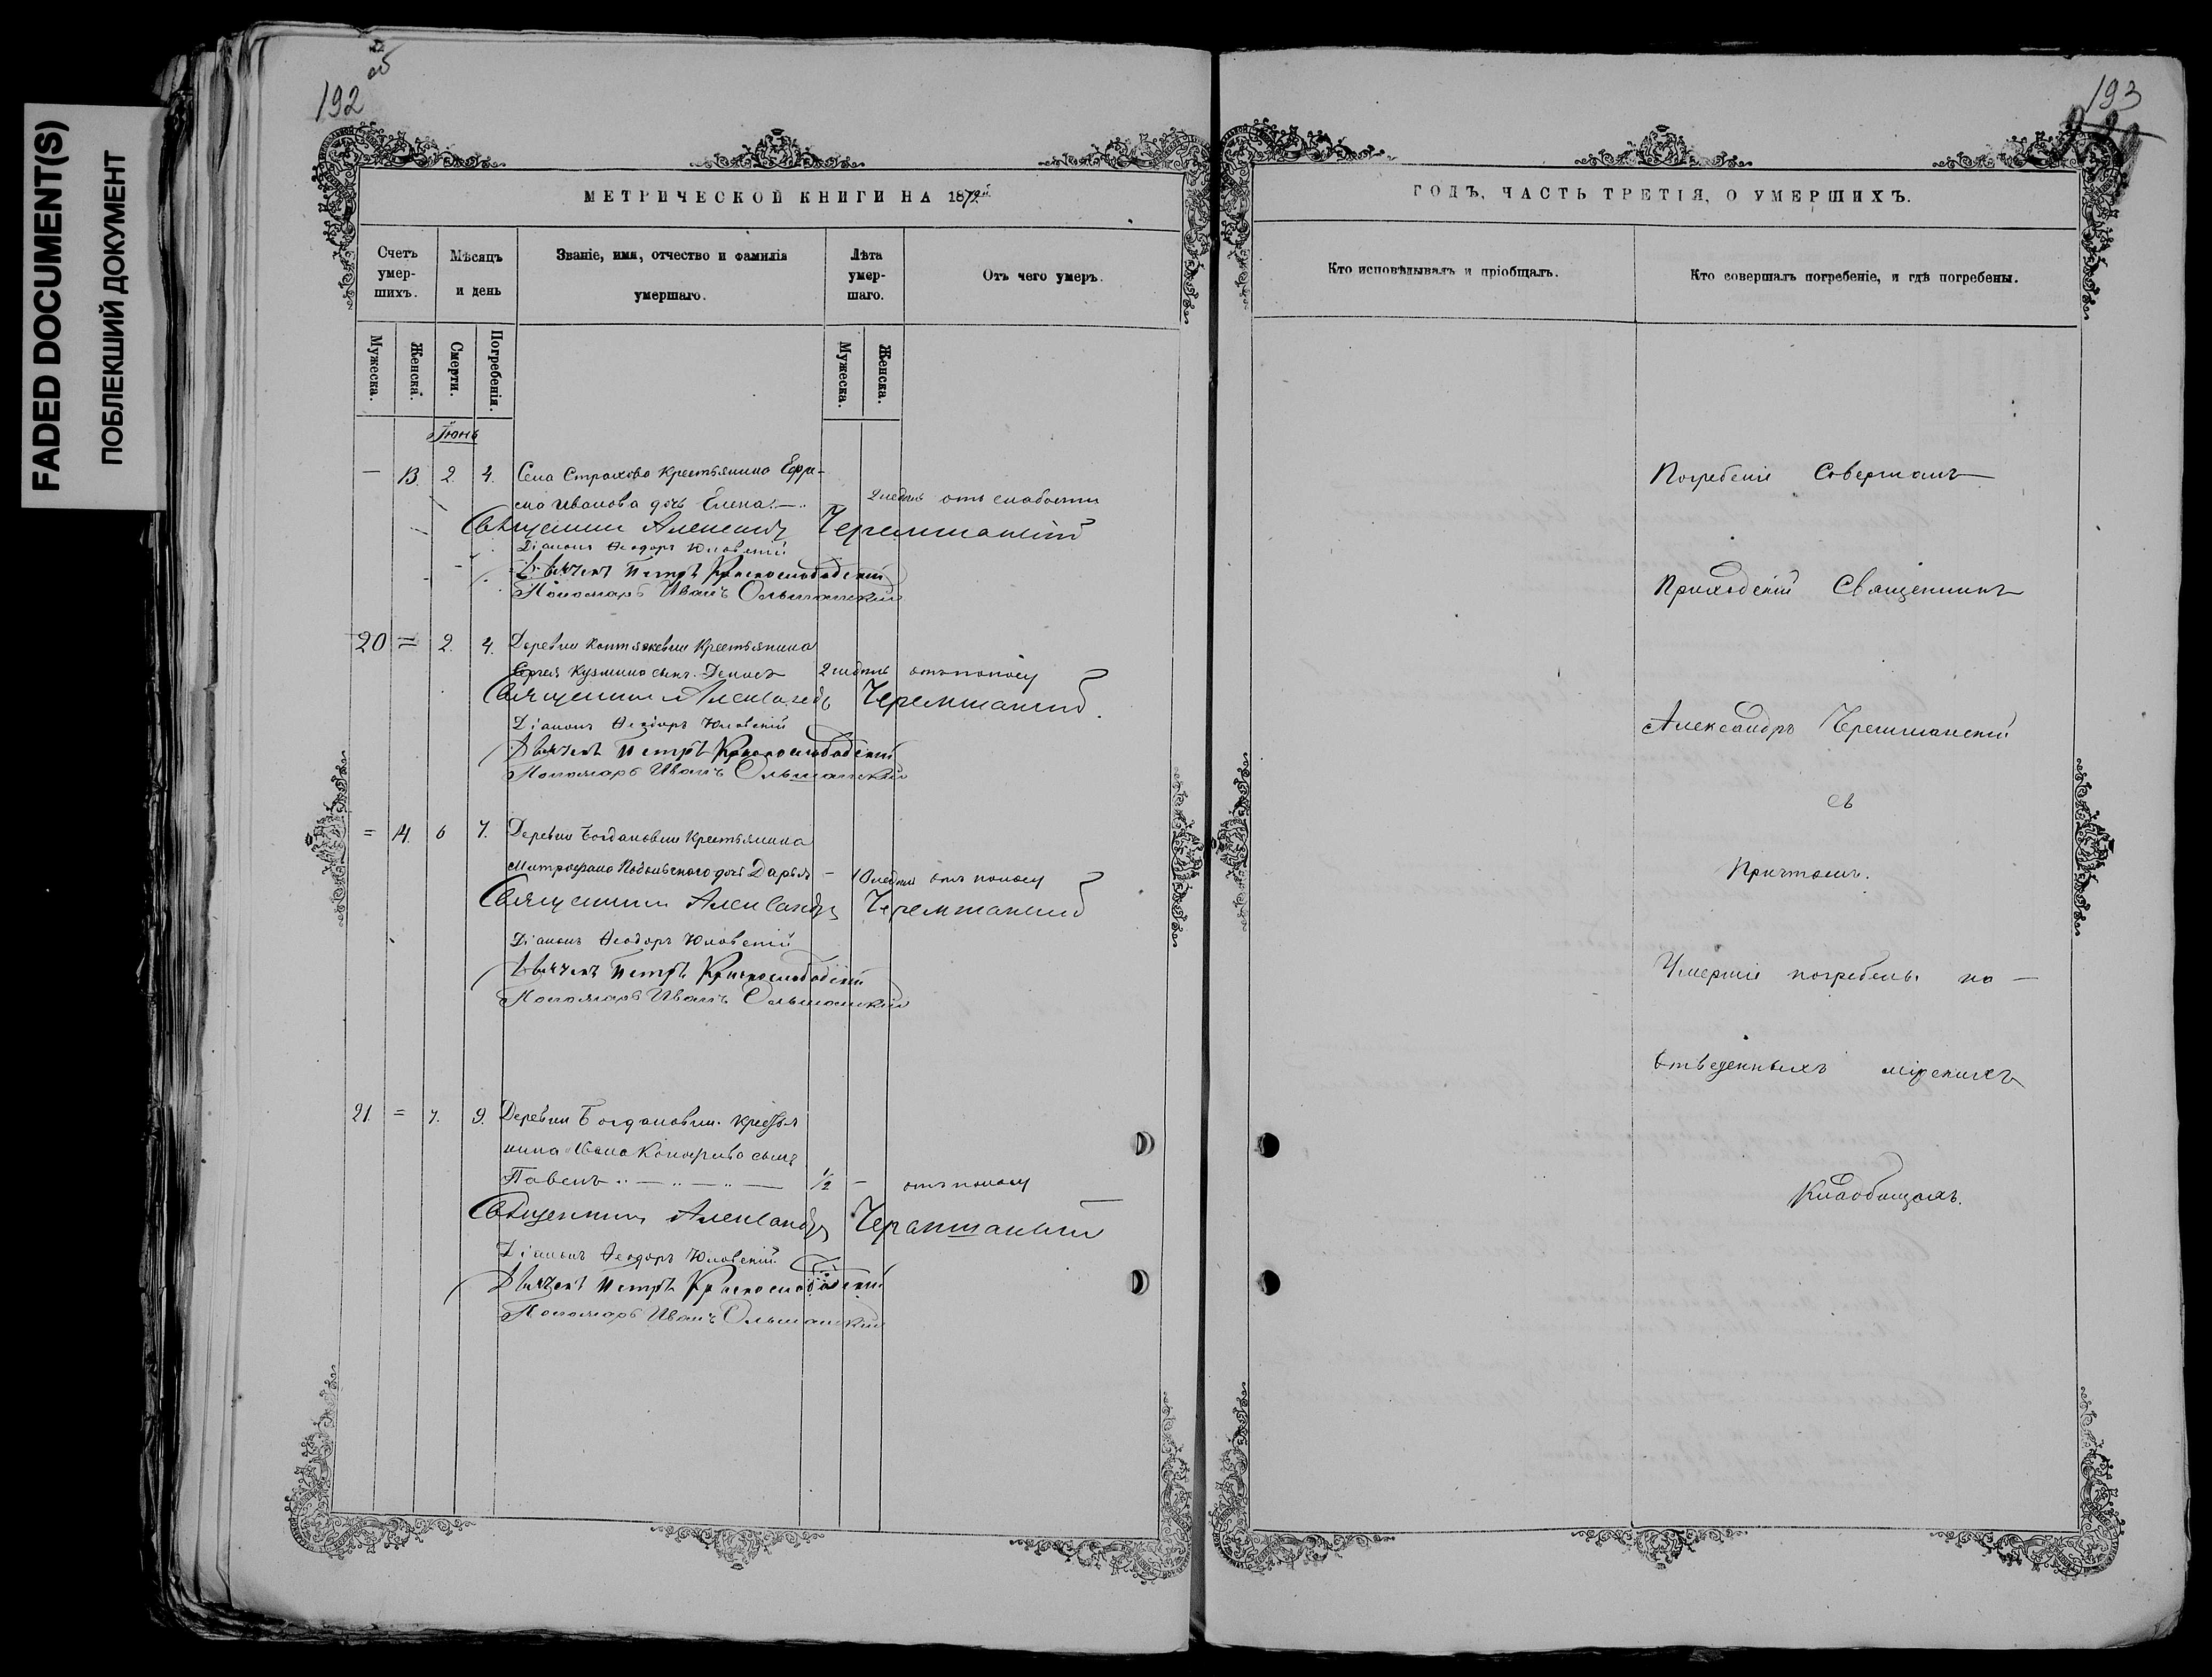 FADED DOCUMENT(S)
ПОБЛЕКШИЙ ДОКУМЕНТ
192
МЕТРИЧЕСКОЙ КНИГИ НА 1879й
Счетъ умер-шихъ.
Мѣсяцъ и день
Званіе, имя, отчество и фамилія умершаго.
Лѣта умер-шаго.
Отъ чего умеръ.
Мужеска.
Женска.
Смерти.
Погребенія.
Мужеска.
Женска.
Іюнь
— 13. 2 4. Села Страхова Крестьянина Ефри-
ма Иванова дочь Елена 2 недель отъ слабости
Священникъ Александръ Черемшанскій
Діаконъ Ѳеодоръ Юловскій
Дьячекъ Петръ Краснослободскій
Пономарь Иванъ Ольшанскій
20 = 2. 4. Деревни Крестьянина
Сергея Кузмина сынъ Денисъ 2 недель отъ поносу
Священникъ Александръ Черемшанскій
Діаконъ Ѳеодоръ Юловскій
Дьячекъ Петръ Краснослободскій
Пономарь Иванъ Ольшанскій
= 14. 6 7. Деревни Богдановки Крестьянина
Митрофана дочь Дарья — 10 недель отъ поносу
Священникъ Александръ Черемшанскій
Діаконъ Ѳеодоръ Юловскій
Дьячекъ Петръ Краснослободскій
Пономарь Иванъ Ольшанскій
21. = 7. 9. Деревни Богдановки Крестья
нина Ивана сынъ
Павелъ ½ — отъ поносу
Священникъ Александръ Черемшанскій
Діаконъ Ѳеодоръ Юловскій
Дьячекъ Петръ Краснослободскій
Пономарь Иванъ Ольшанскій
193
ГОДЪ, ЧАСТЬ ТРЕТІЯ, О УМЕРШИХЪ.
Кто исповѣдывалъ и пріобщалъ.
Кто совершалъ погребеніе, и гдѣ погребены.
Погребеніе Совершалъ
Приходскій Священникъ
Александръ Черемшанскій
съ
Причтомъ.
Умершіе погребены на —
отведенныхъ мірскихъ
Кладбищахъ.